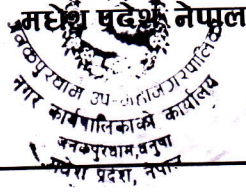 मधेश प्रदेश, नेपाल
जनकपुरधाम उप-महानगरपालिका
नगर कार्यपालिकाको कार्यालय
जनकपुरधाम, धनुषा
मधेश प्रदेश, नेपाल